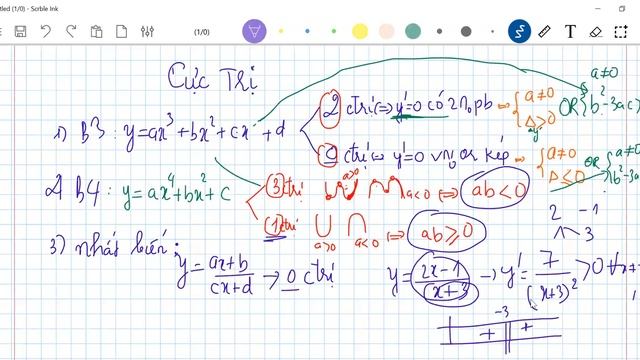 tled (1/0) - Scrble Ink
(1/0)
Cực Trị
1) B3: y=ax³+bx²+cx+d
2 ctrị ⇔ y'=0 có 2 no pb ⇔ { a≠0 Δy'>0 OR { a≠0 b²-3ac>
0 ctrị ⇔ y'=0 vno or kép ⇔ { a≠0 Δ≤0 OR { b²-3a
2) B4: y=ax⁴+bx²+c
3 ctrị a>0 a<0 ⇔ ab<0
1 ctrị a>0 a<0 ⇔ ab≥0
3) nhất biến:
y = (ax+b)/(cx+d) → 0 ctrị
y = (2x-1)/(x+3) → y' = 7/(x+3)² >0 ∀x≠
2 -1
1 3
-3
+ +